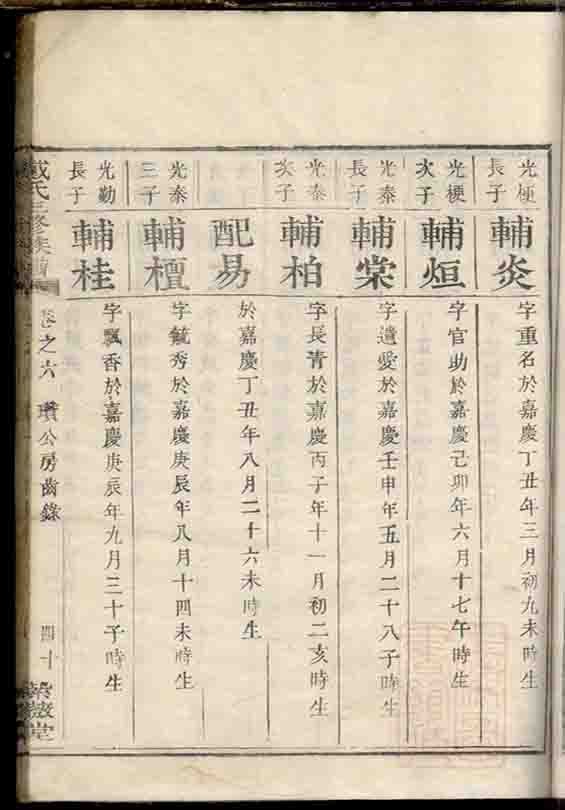 光梗長子
輔炎
字重名於嘉慶丁丑年三月初九未時生
光梗次子
輔烜
字官助於嘉慶己卯年六月十七午時生
光泰長子
輔棠
字遺愛於嘉慶壬申年五月二十八子時生
光泰次子
輔柏
字長青於嘉慶丙子年十一月初二亥時生
配易
於嘉慶丁丑年八月二十六未時生
光泰三子
輔檀
字毓秀於嘉慶庚辰年八月十四未時生
光勤長子
輔桂
字飄香於嘉慶庚辰年九月三十子時生
戴氏三修族譜
卷之六
瓚公房齒錄
四十